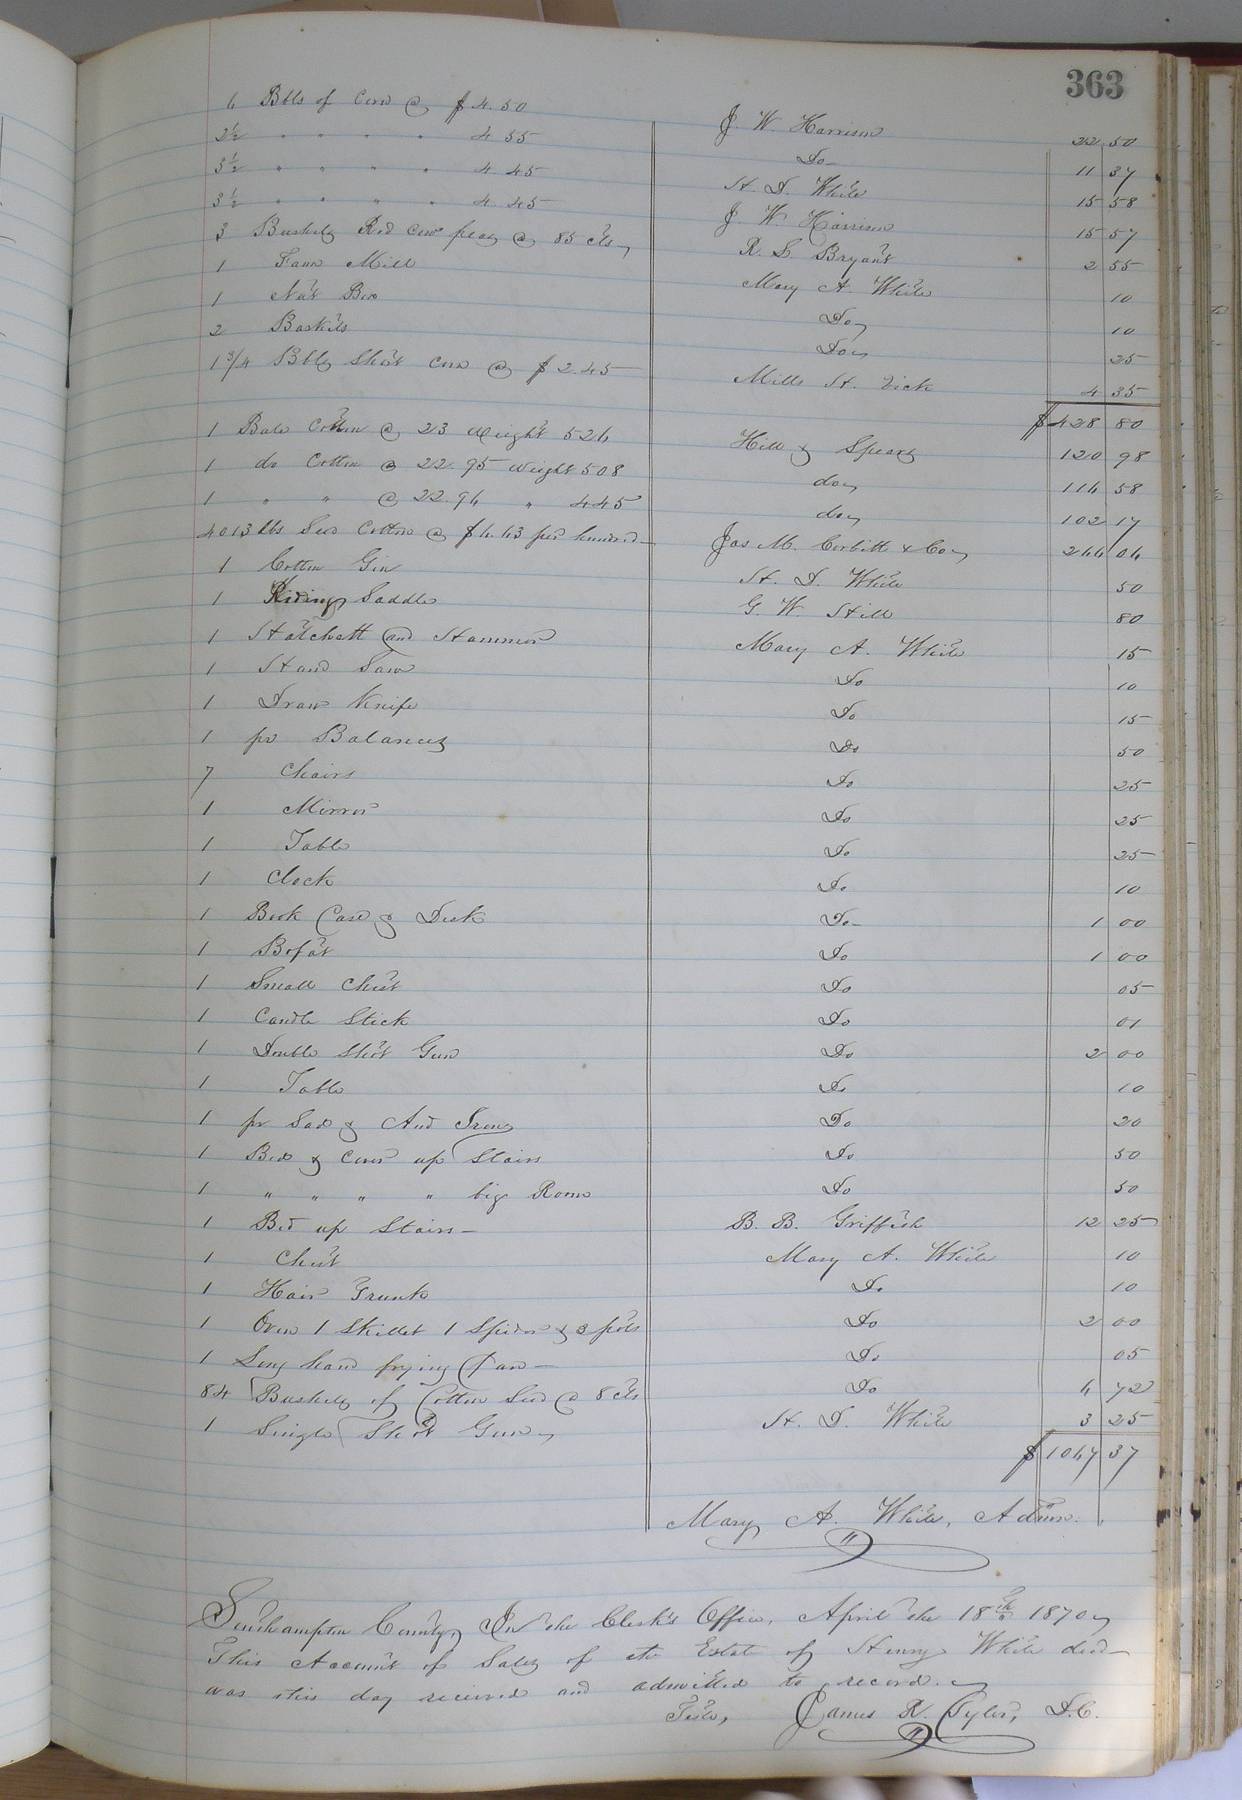 363
6 Bbls of Corn @ $4.50 J. W. Harrison 22 50
2½ " " " " 4 55 Do 11 37
3½ " " " " 4.45 H. D. White 15 58
3½ " " " " 4.45 J. W. Harrison 15 57
3 Bushels Red Cow peas @ 85 cts R. S. Bryant 2 55
1 Fann Mill Mary A. White 10
1 Nat Box Do 10
2 Baskets Do 25
1 3/4 Bbls Short corn @ $2.45 Mills H. Vick 4 35
$428 80
1 Bale Cotton @ 23 weight 526 Hill & Spears 120 98
1 do Cotton @ 22.95 weight 508 do 116 58
1 " " @ 22.96 " 445 do 102 17
4013 lbs Seed Cotton @ $6.63 per hundred Jas M. Corbitt & Co 266 06
1 Cotton Gin H. D. White 50
1 Riding Saddle G. W. Hill 80
1 Hatchett and Hammer Mary A. White 15
1 Hand Saw Do 10
1 Draw Knife Do 15
1 pr Balances Do 50
7 Chairs Do 25
1 Mirror Do 25
1 Table Do 25
1 Clock Do 10
1 Book Case & Desk Do 1 00
1 Bofat Do 1 00
1 Small Chest Do 05
1 Candle Stick Do 01
1 Double Shot Gun Do 2 00
1 Table Do 10
1 pr Sad & And Irons Do 20
1 Bed & Cover up Stairs Do 50
1 " " " " big Room Do 50
1 Bed up Stairs B. B. Griffith 12 25
1 Chest Mary A. White 10
1 Hair Trunk Do 10
1 Oven 1 Skillet 1 Spider & 3 pots Do 2 00
1 Long hand frying Pan Do 05
84 Bushels of Cotton Seed @ 8 cts Do 6 72
1 Single Shot Gun H. D. White 3 25
$1067 37
Mary A. White, Admx.
Southampton County, In the Clerk's Office, April the 18th 1870
This Account of Sales of the Estat of Henry White decd
was this day received and admitted to record.
Teste, James R. Tyler, D.C.